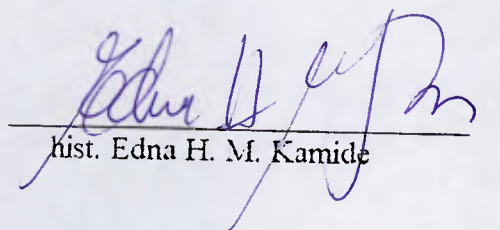 Edna H
hist. Edna H. M. Kamide